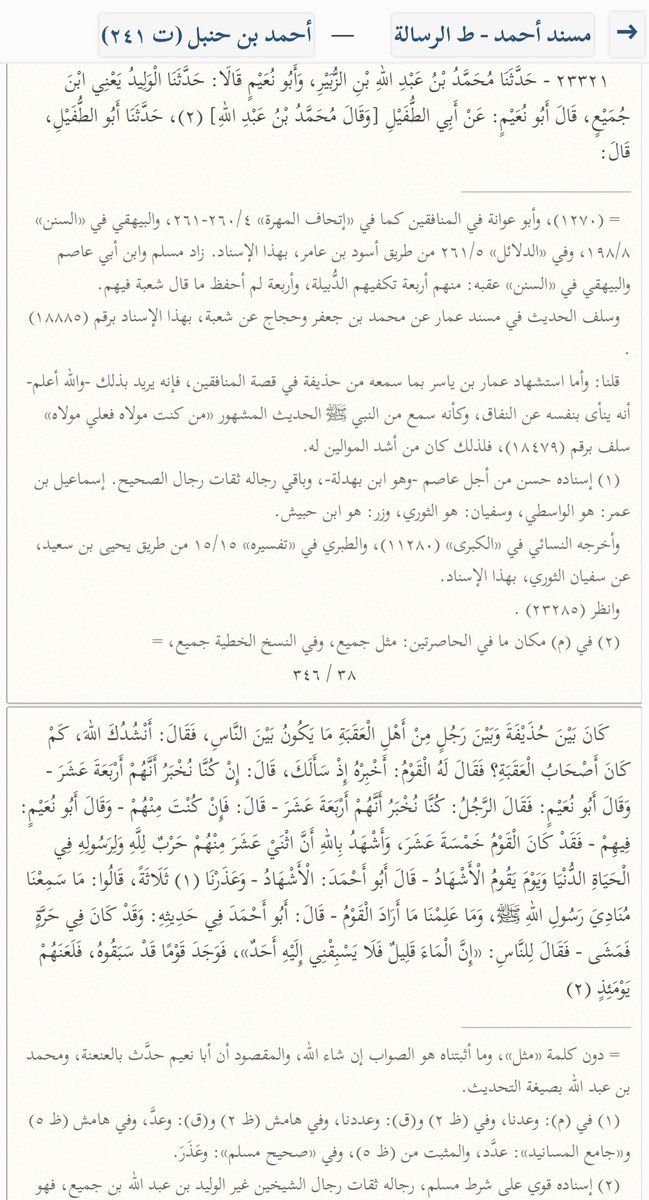 مسند أحمد - ط الرسالة — أحمد بن حنبل (ت ٢٤١)
٢٣٣٢١ - حَدَّثَنَا مُحَمَّدُ بْنُ عَبْدِ اللهِ بْنِ الزُّبَيْرِ، وَأَبُو نُعَيْمٍ قَالَا: حَدَّثَنَا الْوَلِيدُ يَعْنِي ابْنَ
جُمَيْعٍ، قَالَ أَبُو نُعَيْمٍ: عَنْ أَبِي الطُّفَيْلِ [وَقَالَ مُحَمَّدُ بْنُ عَبْدِ اللهِ] (٢)، حَدَّثَنَا أَبُو الطُّفَيْلِ،
قَالَ:
= (١٢٧٠)، وأبو عوانة في المنافقين كما في «إتحاف المهرة» ٤/٢٦٠-٢٦١، والبيهقي في «السنن»
٨/١٩٨، وفي «الدلائل» ٥/٢٦١ من طريق أسود بن عامر، بهذا الإسناد. زاد مسلم وابن أبي عاصم
والبيهقي في «السنن» عقبه: منهم أربعة تكفيهم الدُّبيلة، وأربعة لم أحفظ ما قال شعبة فيهم.
وسلف الحديث في مسند عمار عن محمد بن جعفر وحجاج عن شعبة، بهذا الإسناد برقم (١٨٨٨٥)
.
قلنا: وأما استشهاد عمار بن ياسر بما سمعه من حذيفة في قصة المنافقين، فإنه يريد بذلك -والله أعلم-
أنه ينأى بنفسه عن النفاق، وكأنه سمع من النبي ﷺ الحديث المشهور «من كنت مولاه فعلي مولاه»
سلف برقم (١٨٤٧٩)، فلذلك كان من أشد الموالين له.
(١) إسناده حسن من أجل عاصم -وهو ابن بهدلة-، وباقي رجاله ثقات رجال الصحيح. إسماعيل بن
عمر: هو الواسطي، وسفيان: هو الثوري، وزر: هو ابن حبيش.
وأخرجه النسائي في «الكبرى» (١١٢٨٠)، والطبري في «تفسيره» ١٥/١٥ من طريق يحيى بن سعيد،
عن سفيان الثوري، بهذا الإسناد.
وانظر (٢٣٢٨٥) .
(٢) في (م) مكان ما في الحاصرتين: مثل جميع، وفي النسخ الخطية جميع، =
٣٨ / ٣٤٦
كَانَ بَيْنَ حُذَيْفَةَ وَبَيْنَ رَجُلٍ مِنْ أَهْلِ الْعَقَبَةِ مَا يَكُونُ بَيْنَ النَّاسِ، فَقَالَ: أَنْشُدُكَ اللهَ، كَمْ
كَانَ أَصْحَابُ الْعَقَبَةِ؟ فَقَالَ لَهُ الْقَوْمُ: أَخْبِرْهُ إِذْ سَأَلَكَ، قَالَ: إِنْ كُنَّا نُخْبَرُ أَنَّهُمْ أَرْبَعَةَ عَشَرَ -
وَقَالَ أَبُو نُعَيْمٍ: فَقَالَ الرَّجُلُ: كُنَّا نُخْبَرُ أَنَّهُمْ أَرْبَعَةَ عَشَرَ - قَالَ: فَإِنْ كُنْتَ مِنْهُمْ - وَقَالَ أَبُو نُعَيْمٍ:
فِيهِمْ - فَقَدْ كَانَ الْقَوْمُ خَمْسَةَ عَشَرَ، وَأَشْهَدُ بِاللهِ أَنَّ اثْنَيْ عَشَرَ مِنْهُمْ حَرْبٌ لِلَّهِ وَلِرَسُولِهِ فِي
الْحَيَاةِ الدُّنْيَا وَيَوْمَ يَقُومُ الْأَشْهَادُ - قَالَ أَبُو أَحْمَدَ: الْأَشْهَادُ - وَعَذَرْنَا (١) ثَلَاثَةً، قَالُوا: مَا سَمِعْنَا
مُنَادِيَ رَسُولِ اللهِ ﷺ، وَمَا عَلِمْنَا مَا أَرَادَ الْقَوْمُ - قَالَ: أَبُو أَحْمَدَ فِي حَدِيثِهِ: وَقَدْ كَانَ فِي حَرَّةٍ
فَمَشَى - فَقَالَ لِلنَّاسِ: «إِنَّ الْمَاءَ قَلِيلٌ فَلَا يَسْبِقْنِي إِلَيْهِ أَحَدٌ»، فَوَجَدَ قَوْمًا قَدْ سَبَقُوهُ، فَلَعَنَهُمْ
يَوْمَئِذٍ (٢)
= دون كلمة «مثل»، وما أثبتناه هو الصواب إن شاء الله، والمقصود أن أبا نعيم حدَّث بالعنعنة، ومحمد
بن عبد الله بصيغة التحديث.
(١) في (م): وعدنا، وفي (ظ ٢) و(ق): وعددنا، وفي هامش (ظ ٢) و(ق): وعدَّ، وفي هامش (ظ ٥)
و«جامع المسانيد»: عدَّد، والمثبت من (ظ ٥)، وفي «صحيح مسلم»: وعَذَرَ.
(٢) إسناده قوي على شرط مسلم، رجاله ثقات رجال الشيخين غير الوليد بن عبد الله بن جميع، فهو